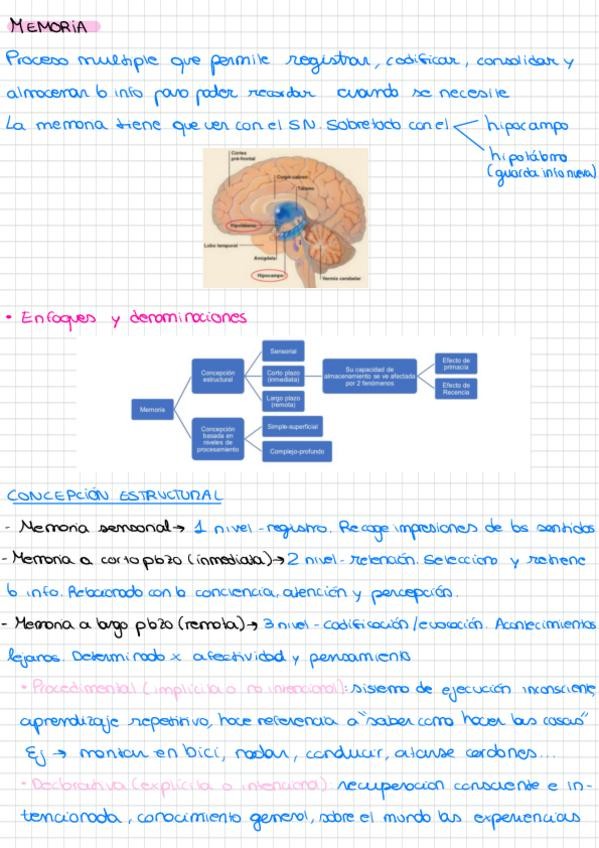 MEMORIA
Proceso multiple que permite registrar, codificar, consolidar y
almacenar la info para poder recordar cuando se necesite
La memoria tiene que ver con el SN. Sobretodo con el
hipocampo
hipotálamo
(guarda info nueva)
Cortex pre-frontal
Corpo caloso
Tálamo
Hipotálamo
Lobo temporal
Amígdala
Hipocampo
Vermis cerebelar
• Enfoques y denominaciones
Memoria
Concepción estructural
Sensorial
Corto plazo (inmediata)
Largo plazo (remota)
Su capacidad de almacenamiento se ve afectada por 2 fenómenos
Efecto de primacía
Efecto de Recencia
Concepción basada en niveles de procesamiento
Simple-superficial
Complejo-profundo
CONCEPCIÓN ESTRUCTURAL
- Memoria sensorial → 1 nivel - registro. Recoge impresiones de los sentidos
- Memoria a corto plazo (inmediata) → 2 nivel - retención. Selecciona y retiene
la info. Relacionado con la conciencia, atención y percepción.
- Memoria a largo plazo (remota) → 3 nivel - codificación/evocación. Acontecimientos
lejanos. Determinado x afectividad y pensamiento
• Procedimental (implícita o no intencional): sistema de ejecución inconsciente,
aprendizaje repetitivo, hace referencia a "saber como hacer las cosas"
Ej → montar en bici, nadar, conducir, atarse cordones...
• Declarativa (explícita o intencional): recuperación consciente e in-
tencionada, conocimiento general, sobre el mundo las experiencias